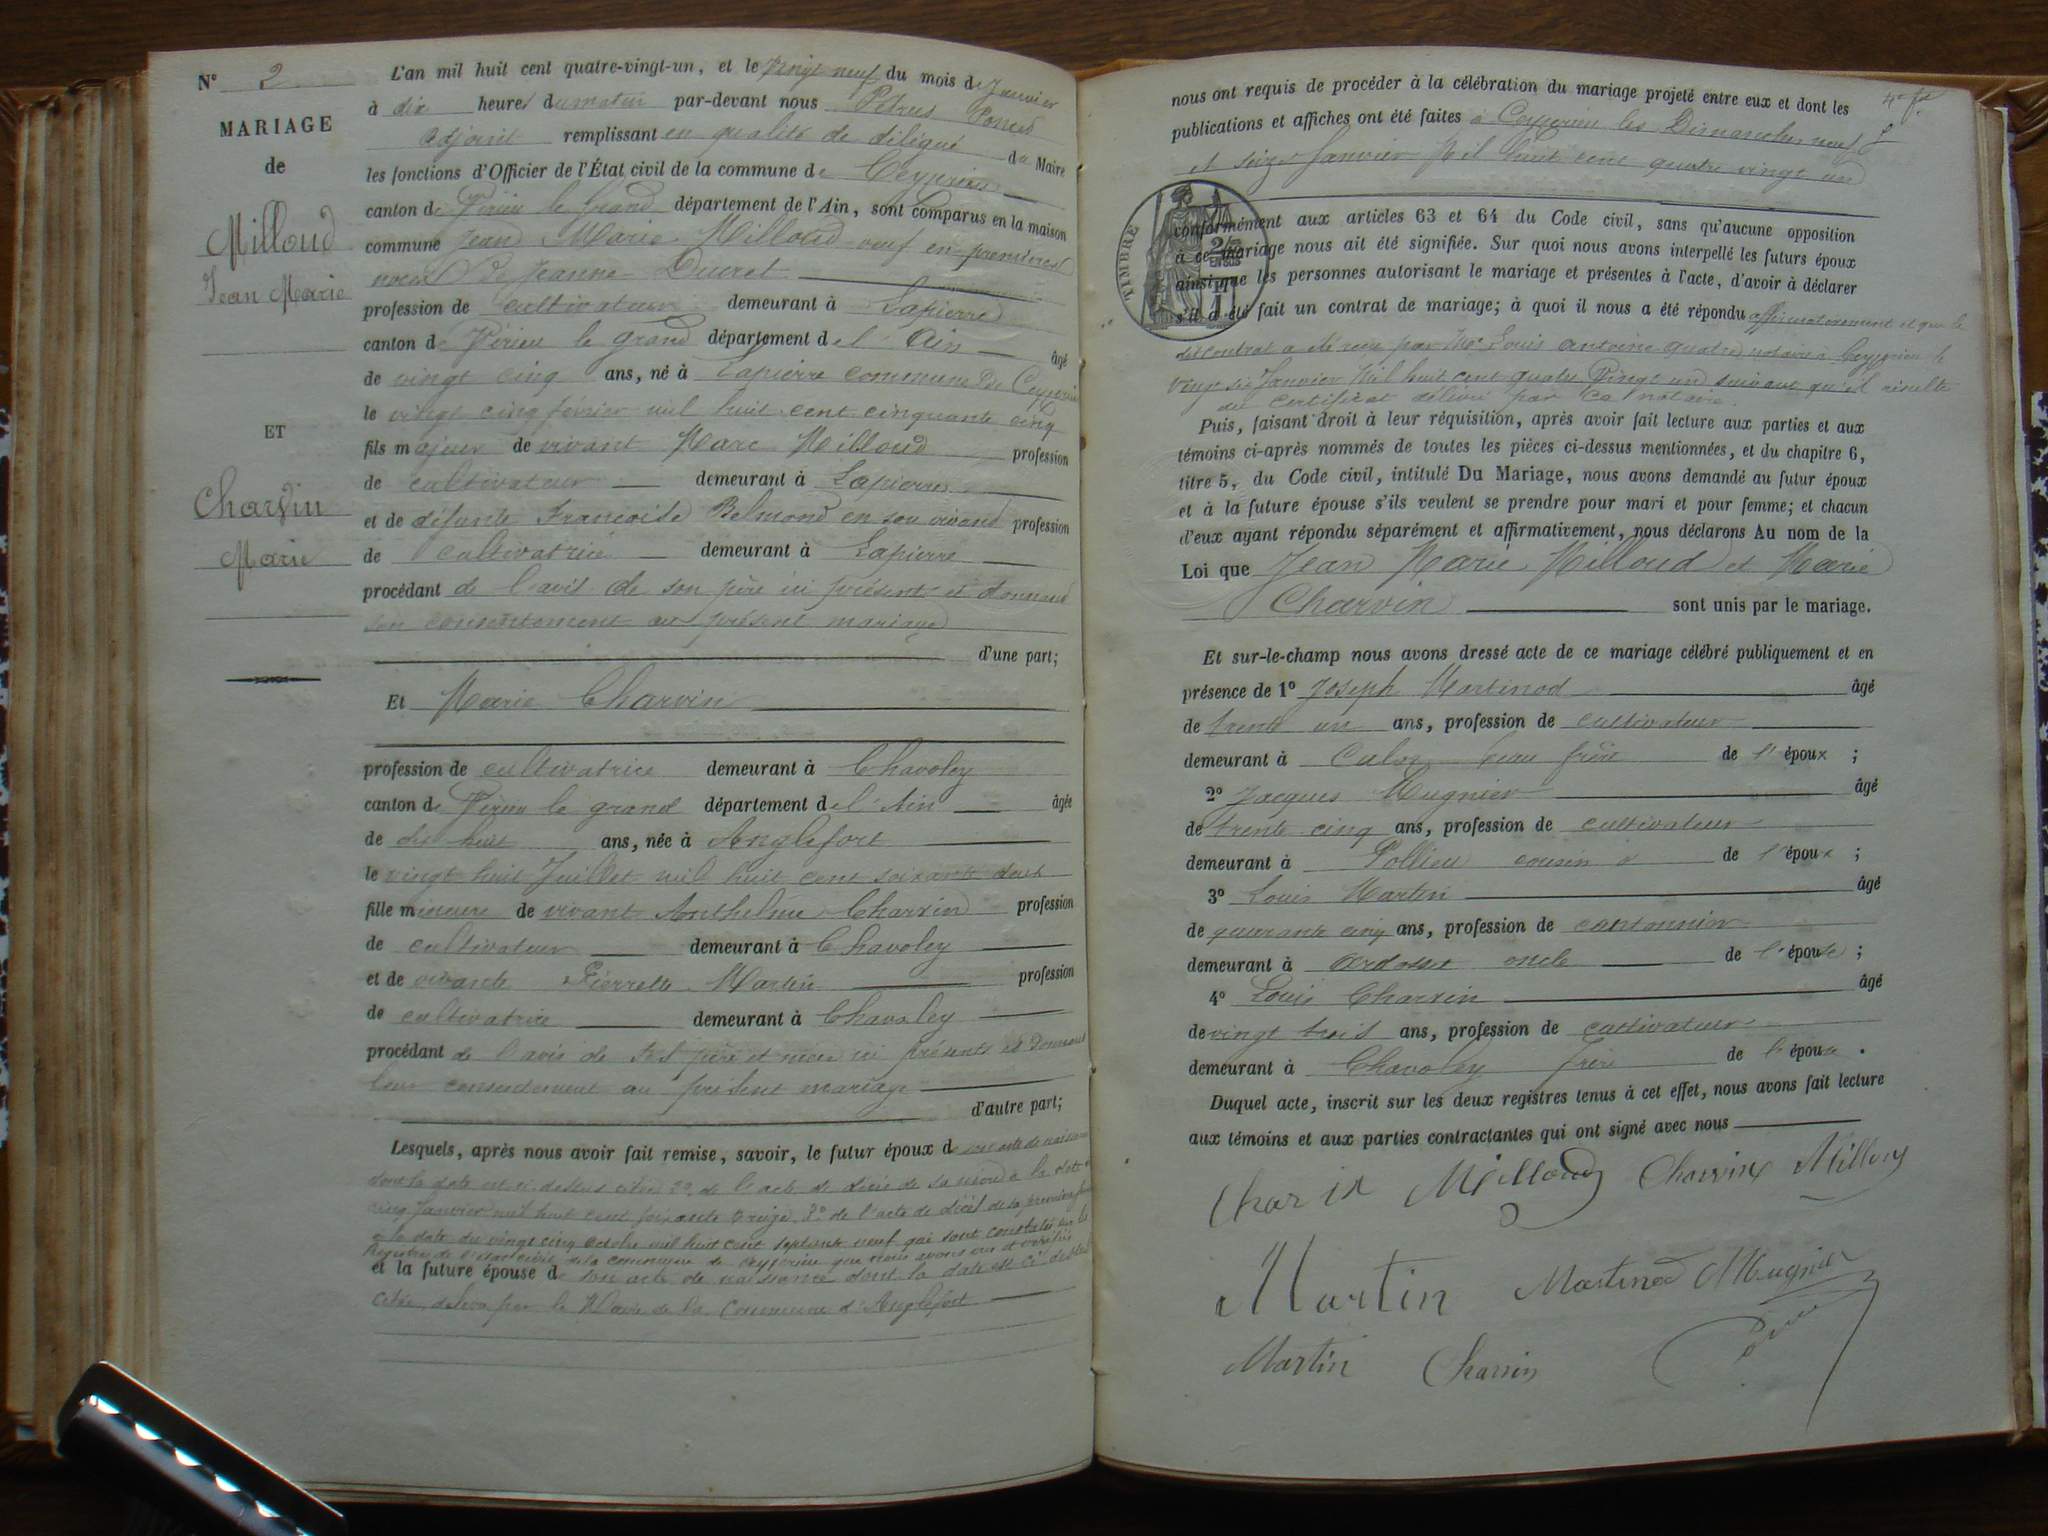 N° 2
MARIAGE
de
Milloud
Jean Marie
ET
Charvin
Marie
L'an mil huit cent quatre-vingt-un, et le vingt neuf du mois de Janvier
à dix heures du matin par-devant nous Pétrus
adjoint remplissant en qualité de délégué du Maire
les fonctions d'Officier de l'État civil de la commune de Ceyzérieu
canton de Virieu le grand département de l'Ain, sont comparus en la maison
commune Jean Marie Milloud veuf en premières
noces de Jeanne Ducret
profession de cultivateur demeurant à Lapierre
canton de Virieu le grand département de l'Ain âgé
de vingt cinq ans, né à Lapierre commune de Ceyzérieu
le vingt cinq février mil huit cent cinquante cinq
fils majeur de vivant Marc Milloud profession
de cultivateur demeurant à Lapierre
et de défunte Françoise Belmond en son vivant profession
de cultivatrice demeurant à Lapierre
procédant de l'avis de son père ici présent et donnant
son consentement au présent mariage
d'une part;
Et Marie Charvin
profession de cultivatrice demeurant à Chavoley
canton de Virieu le grand département de l'Ain âgée
de dix huit ans, née à Anglefort
le vingt huit Juillet mil huit cent soixante deux
fille mineure de vivant Anthelme Charvin profession
de cultivateur demeurant à Chavoley
et de vivante Pierrette Martin profession
de cultivatrice demeurant à Chavoley
procédant de l'avis de ses père et mère ici présents et donnant
leur consentement au présent mariage
d'autre part;
Lesquels, après nous avoir fait remise, savoir, le futur époux de son acte de naissance
dont la date est ci dessus citée 2° de l'acte de décès de sa mère à la date
cinq Janvier mil huit cent soixante treize 3° de l'acte de décès de sa première femme
à la date du vingt cinq octobre mil huit cent septante neuf qui sont constatés sur les
Registres de l'état civil de la commune de Ceyzérieu que nous avons vu et vérifiés
et la future épouse de son acte de naissance dont la date est ci dessus
citée, délivré par le Maire de la Commune d'Anglefort
nous ont requis de procéder à la célébration du mariage projeté entre eux et dont les
publications et affiches ont été faites à Ceyzérieu les Dimanches neuf
et seize Janvier Mil huit cent quatre vingt un
TIMBRE
conformément aux articles 63 et 64 du Code civil, sans qu'aucune opposition
à ce mariage nous ait été signifiée. Sur quoi nous avons interpellé les futurs époux
ainsi que les personnes autorisant le mariage et présentes à l'acte, d'avoir à déclarer
s'il a été fait un contrat de mariage; à quoi il nous a été répondu affirmativement et que le
dit contrat a été reçu par Me Louis antoine notaire à Ceyzérieu le
vingt six Janvier Mil huit cent quatre vingt un suivant qu'il résulte
du certificat délivré par ce notaire.
Puis, faisant droit à leur réquisition, après avoir fait lecture aux parties et aux
témoins ci-après nommés de toutes les pièces ci-dessus mentionnées, et du chapitre 6,
titre 5, du Code civil, intitulé Du Mariage, nous avons demandé au futur époux
et à la future épouse s'ils veulent se prendre pour mari et pour femme; et chacun
d'eux ayant répondu séparément et affirmativement, nous déclarons Au nom de la
Loi que Jean Marie Milloud et Marie
Charvin sont unis par le mariage.
Et sur-le-champ nous avons dressé acte de ce mariage célébré publiquement et en
présence de 1° Joseph Martinod âgé
de trente un ans, profession de cultivateur
demeurant à beau frère de l'époux ;
2° Jacques Mugnier âgé
de trente cinq ans, profession de cultivateur
demeurant à Pollieu cousin de l'époux ;
3° Louis Martin âgé
de quarante cinq ans, profession de cantonnier
demeurant à ardosset oncle de l'épouse ;
4° Louis Charvin âgé
de vingt trois ans, profession de cultivateur
demeurant à Chavoley frère de l'épouse .
Duquel acte, inscrit sur les deux registres tenus à cet effet, nous avons fait lecture
aux témoins et aux parties contractantes qui ont signé avec nous
Charvin Milloud Charvin Milloud
Martin Martinod Mugnier
Martin Charvin